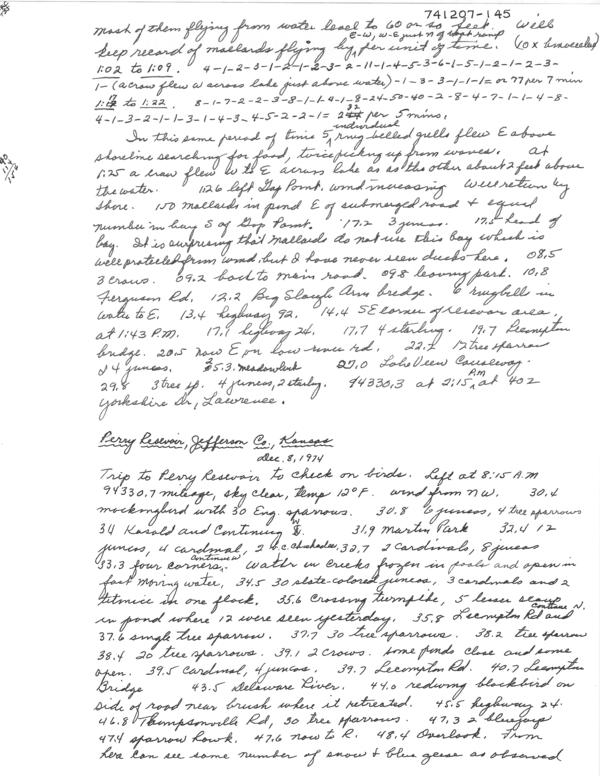 741207-145
most of them flying from water level to 60 or so feet. Will
E-W, W-E just N of boat ramp
keep record of mallards flying by, per unit of time. (10 x binoculars)
1:02 to 1:09. 4-1-2-3-1-2-1-2-3-2-11-1-4-5-3-6-1-5-1-2-1-2-3-
1-(a crow flew W across lake just above water)-1-3-3-1-1-1= or 77 per 7 min
1:17 to 1:22. 8-1-7-2-2-3-8-1-1-4-1-8-24-50-40-2-8-4-7-1-1-4-8-
4-1-3-2-1-1-3-1-4-3-4-5-2-2-1= per 5 mins.
individual
In this same period of time 5 ring-billed gulls flew E above
shoreline searching for food, twice picking up from waves. At
1:25 a crow flew W to E across lake as as the other about 2 feet above
the water. 1:26 left Gap Point. wind increasing Will return by
shore. 150 mallards in pond E of submerged road & equal
number in bay S of Gap Point. 17.2 3 juncos. 17.5 head of
bay. It is surprising that mallards do not use this bay which is
well protected from wind, but I have never seen ducks here. 08.5
3 crows. 09.2 back to main road. 09.8 leaving park. 10.8
Ferguson Rd. 12.2 Big Slough Arm bridge. 6 ringbills in
water to E. 13.4 highway 92. 14.4 SE corner of reservoir area,
at 1:43 P.M. 17.1 highway 24. 17.7 4 starling. 19.7 Lecompton
bridge. 20.5 now E on low river rd. 22.2 12 tree sparrow
24 juncos. 25.3. meadowlark 27.0 Lake View Causeway.
29.8 3 tree sp. 4 juncos, 2 starling. 94330.3 at 2:15 AM at 402
Yorkshire Dr., Lawrence.
Perry Reservoir, Jefferson Co., Kansas
Dec. 8, 1974
Trip to Perry Reservoir to check on birds. Left at 8:15 A.M
94330.7 mileage, sky clear, temp 12°F. wind from NW. 30.4
mockingbird with 30 Eng. sparrows. 30.8 6 juncos, 4 tree sparrows
31 Kasold and Continuing W. 31.9 Martin Park 32.4 12
juncos, 4 cardinal, 2 b.c. chickadee, 32.7 2 cardinals, 8 juncos
continue W
33.3 four corners, Water in creeks frozen in pools and open in
fast moving water, 34.5 30 slate-colored juncos, 3 cardinals and 2
titmice in one flock. 35.6 Crossing turnpike, 5 lesser scaup
in pond where 12 were seen yesterday. 35.8 Lecompton Rd and continue N.
37.6 single tree sparrow. 37.7 30 tree sparrows. 38.2 tree sparrow
38.4 20 tree sparrows. 39.1 2 crows. some ponds close and some
open. 39.5 cardinal, 4 juncos. 39.7 Lecompton Rd. 40.7 Lecompton
Bridge 43.5 Delaware River. 44.0 redwing blackbird on
side of road near brush where it retreated. 45.5 highway 24.
46.8 Thompsonville Rd, 30 tree sparrows. 47.3 2 bluejays
47.4 sparrow hawk. 47.6 now to R. 48.4 Overlook. From
here can see same number of snow & blue geese as observed